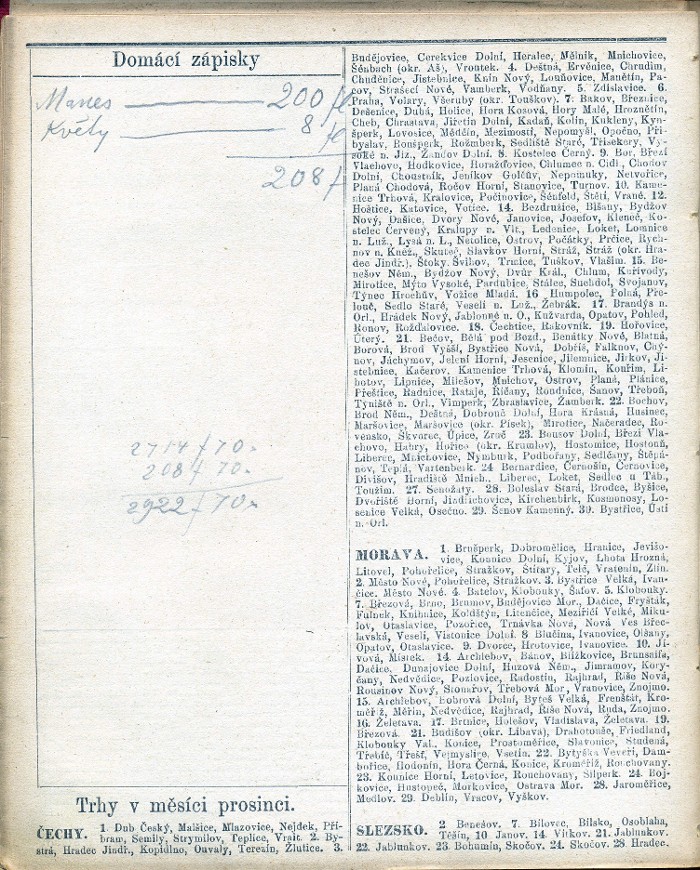 Domácí zápisky
Manes — 200 f
Květy — 8 f
208 f
2714 f 70.
208 f 70.
2922 f 70.
Trhy v měsíci prosinci.
ČECHY. 1. Dub Český, Malšice, Mlazovice, Nejdek, Pří-
bram, Semily, Strymilov, Teplice, Vrait. 2. By-
strá, Hradec Jindř., Kopidlno, Ouvaly, Terezín, Žlutice. 3.
Budějovice, Cerekvice Dolní, Heralec, Mělník, Mnichovice,
Šenbach (okr. Aš), Vroutek. 4. Deštná, Ervěnice, Chrudim,
Chuděnice, Jistebnice, Knín Nový, Louňovice, Manětín, Pa-
cov, Strašecí Nové, Vamberk, Vodňany. 5. Zdislavice. 6.
Praha, Volary, Všeruby (okr. Touškov). 7. Bakov, Březnice,
Dešenice, Dubá, Holice, Hora Kosová, Hory Malé, Hroznětín,
Cheb, Chrastava, Jiřetín Dolní, Kadaň, Kolín, Kukleny, Kyn-
šperk, Lovosice, Mědčín, Mezimostí, Nepomyšl, Opočno, Při-
byslav, Ronšperk, Rožmberk, Sedliště Staré, Třísekery, Vy-
soké n. Jiz., Žandov Dolní. 8. Kostelec Černý. 9. Bor, Březí
Vlachovo, Hodkovice, Horažďovice, Chlumec n. Cidl., Chodov
Dolní, Choustník, Jeníkov Golčův, Nepomuky, Netvořice,
Planá Chodová, Ročov Horní, Stanovice, Turnov. 10. Kame-
nice Trhová, Kralovice, Počinovice, Šénfeld, Štětí, Vrané. 12.
Hoštice, Katovice, Votice. 14. Bezdružice, Blšany, Bydžov
Nový, Dašice, Dvory Nové, Janovice, Josefov, Kleneč, Ko-
stelec Červený, Kralupy n. Vlt., Ledenice, Loket, Lomnice
n. Luž., Lysá n. L., Netolice, Ostrov, Počátky, Prčice, Rych-
nov n. Kněž., Skuteč, Slavkov Horní, Stráž, Stráž (okr. Hra-
dec Jindř.), Štoky, Švihov, Trmice, Tuškov, Vlašim. 15. Be-
nešov Něm., Bydžov Nový, Dvůr Král., Chlum, Kuřívody,
Mirotice, Mýto Vysoké, Pardubice, Stálec, Suchdol, Svojanov,
Týnec Hrochův, Vožice Mladá. 16 Humpolec, Polná, Pře-
louč, Sedlo Staré, Veselí n. Luž., Žebrák. 17. Brandýs n.
Orl., Hrádek Nový, Jablonné n. O., Kužvarda, Opatov, Pohled,
Ronov, Rožďalovice. 18. Čechtice, Rakovník. 19. Hořovice,
Úterý. 21. Bečov, Bělá pod Bozd., Benátky Nové, Blatná,
Borová, Brod Vyšší, Bystřice Nová, Dobříš, Falknov, Chý-
nov, Jáchymov, Jelení Horní, Jesenice, Jilemnice, Jirkov, Ji-
stebnice, Kačerov, Kamenice Trhová, Klomín, Kouřim, Li-
botov, Lipnice, Milešov, Mnichov, Ostrov, Planá, Plánice,
Přeštice, Radnice, Rataje, Říčany, Roudnice, Šanov, Třeboň,
Týniště n. Orl., Vimperk, Zbraslavice, Žamberk. 22. Bochov,
Brod Něm., Deštná, Dobrouč Dolní, Hora Krásná, Husinec,
Maršovice, Maršovice (okr. Písek), Mirotice, Načeradec, Ro-
vensko, Škvorec, Úpice, Zruč 23. Bousov Dolní, Březí Vla-
chovo, Habry, Hořice (okr. Krumlov), Hostomice, Hostouň,
Liberec, Mnichovice, Nymburk, Podbořany, Sedlčany, Štěpá-
nov, Teplá, Vartenberk. 24 Bernardice, Černošín, Černovice,
Divišov, Hradiště Mnich., Liberec, Loket, Sedlec u Táb.,
Toužim. 27. Senožaty. 28. Boleslav Stará, Brodce, Byšice,
Dvořiště Horní, Jindřichovice, Kirchenbirk, Kosmonosy, Lo-
senice Velká, Osečno. 29. Šenov Kamenný. 30. Bystřice, Ústí
n. Orl.
MORAVA. 1. Brušperk, Dobromělice, Hranice, Jevišo-
vice, Kounice Dolní, Kyjov, Lhota Hrozná,
Litovel, Pohořelice, Stražkov, Štítary, Telč, Vratenín, Zlín.
2. Město Nové, Pohořelice, Stražkov. 3. Bystřice Velká, Ivan-
čice. Město Nové. 4. Batelov, Klobouky, Šafov. 5. Klobouky.
7. Březová, Brno, Brumov, Budějovice Mor., Dačice, Fryšták,
Fulnek, Knihnice, Koldštýn, Litenčice, Meziříčí Velké, Miku-
lov, Otaslavice, Pozořice, Trnávka Nová, Nová Ves Břec-
lavská, Veselí, Vistonice Dolní. 8 Blučina, Ivanovice, Olšany,
Opatov, Otaslavice. 9. Dvorce, Hrotovice, Ivanovice. 10. Jí-
vová, Místek. 14. Archlebov, Bánov, Blížkovice, Brumsajfa,
Dačice, Dunajovice Dolní, Huzová Něm., Jimramov, Kory-
čany, Nedvědice, Pozlovice, Radostín, Rajhrad, Říše Nová,
Rousínov Nový, Stonařov, Třebová Mor., Vranovice, Znojmo.
15. Archlebov, Bobrová Dolní, Byteš Velká, Frenštát, Kro-
měříž, Měřín, Nedvědice, Rajhrad, Říše Nová, Ruda, Znojmo.
16. Želetava. 17. Brtnice, Holešov, Vladislava, Želetava. 19.
Březová. 21. Budišov (okr. Libavá), Drahotouše, Friedland,
Klobouky Val., Konice, Prostoměřice, Slavonice, Studená,
Třebíč, Třešť, Vejmyslice, Vsetín. 22. Bytyška Veveří, Dam-
bořice, Hodonín, Hora Černá, Konice, Kroměříž, Rouchovany.
23. Kounice Horní, Letovice, Rouchovany, Šilperk. 24. Boj-
kovice, Hustopeč, Morkovice, Ostrava Mor. 28. Jaroměřice,
Modlov. 29. Deblín, Vracov, Vyškov.
SLEZSKO. 2 Benešov. 7. Bílovec, Bílsko, Osoblaha,
Těšín, 10 Janov. 14. Vítkov. 21. Jablunkov.
22. Jablunkov. 23. Bohumín, Skočov. 24. Skočov. 28. Hradec.